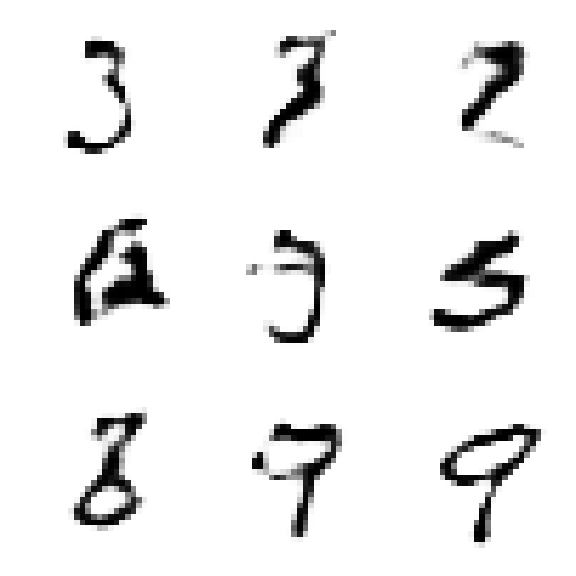 3 3 2
3 5
8 9 9